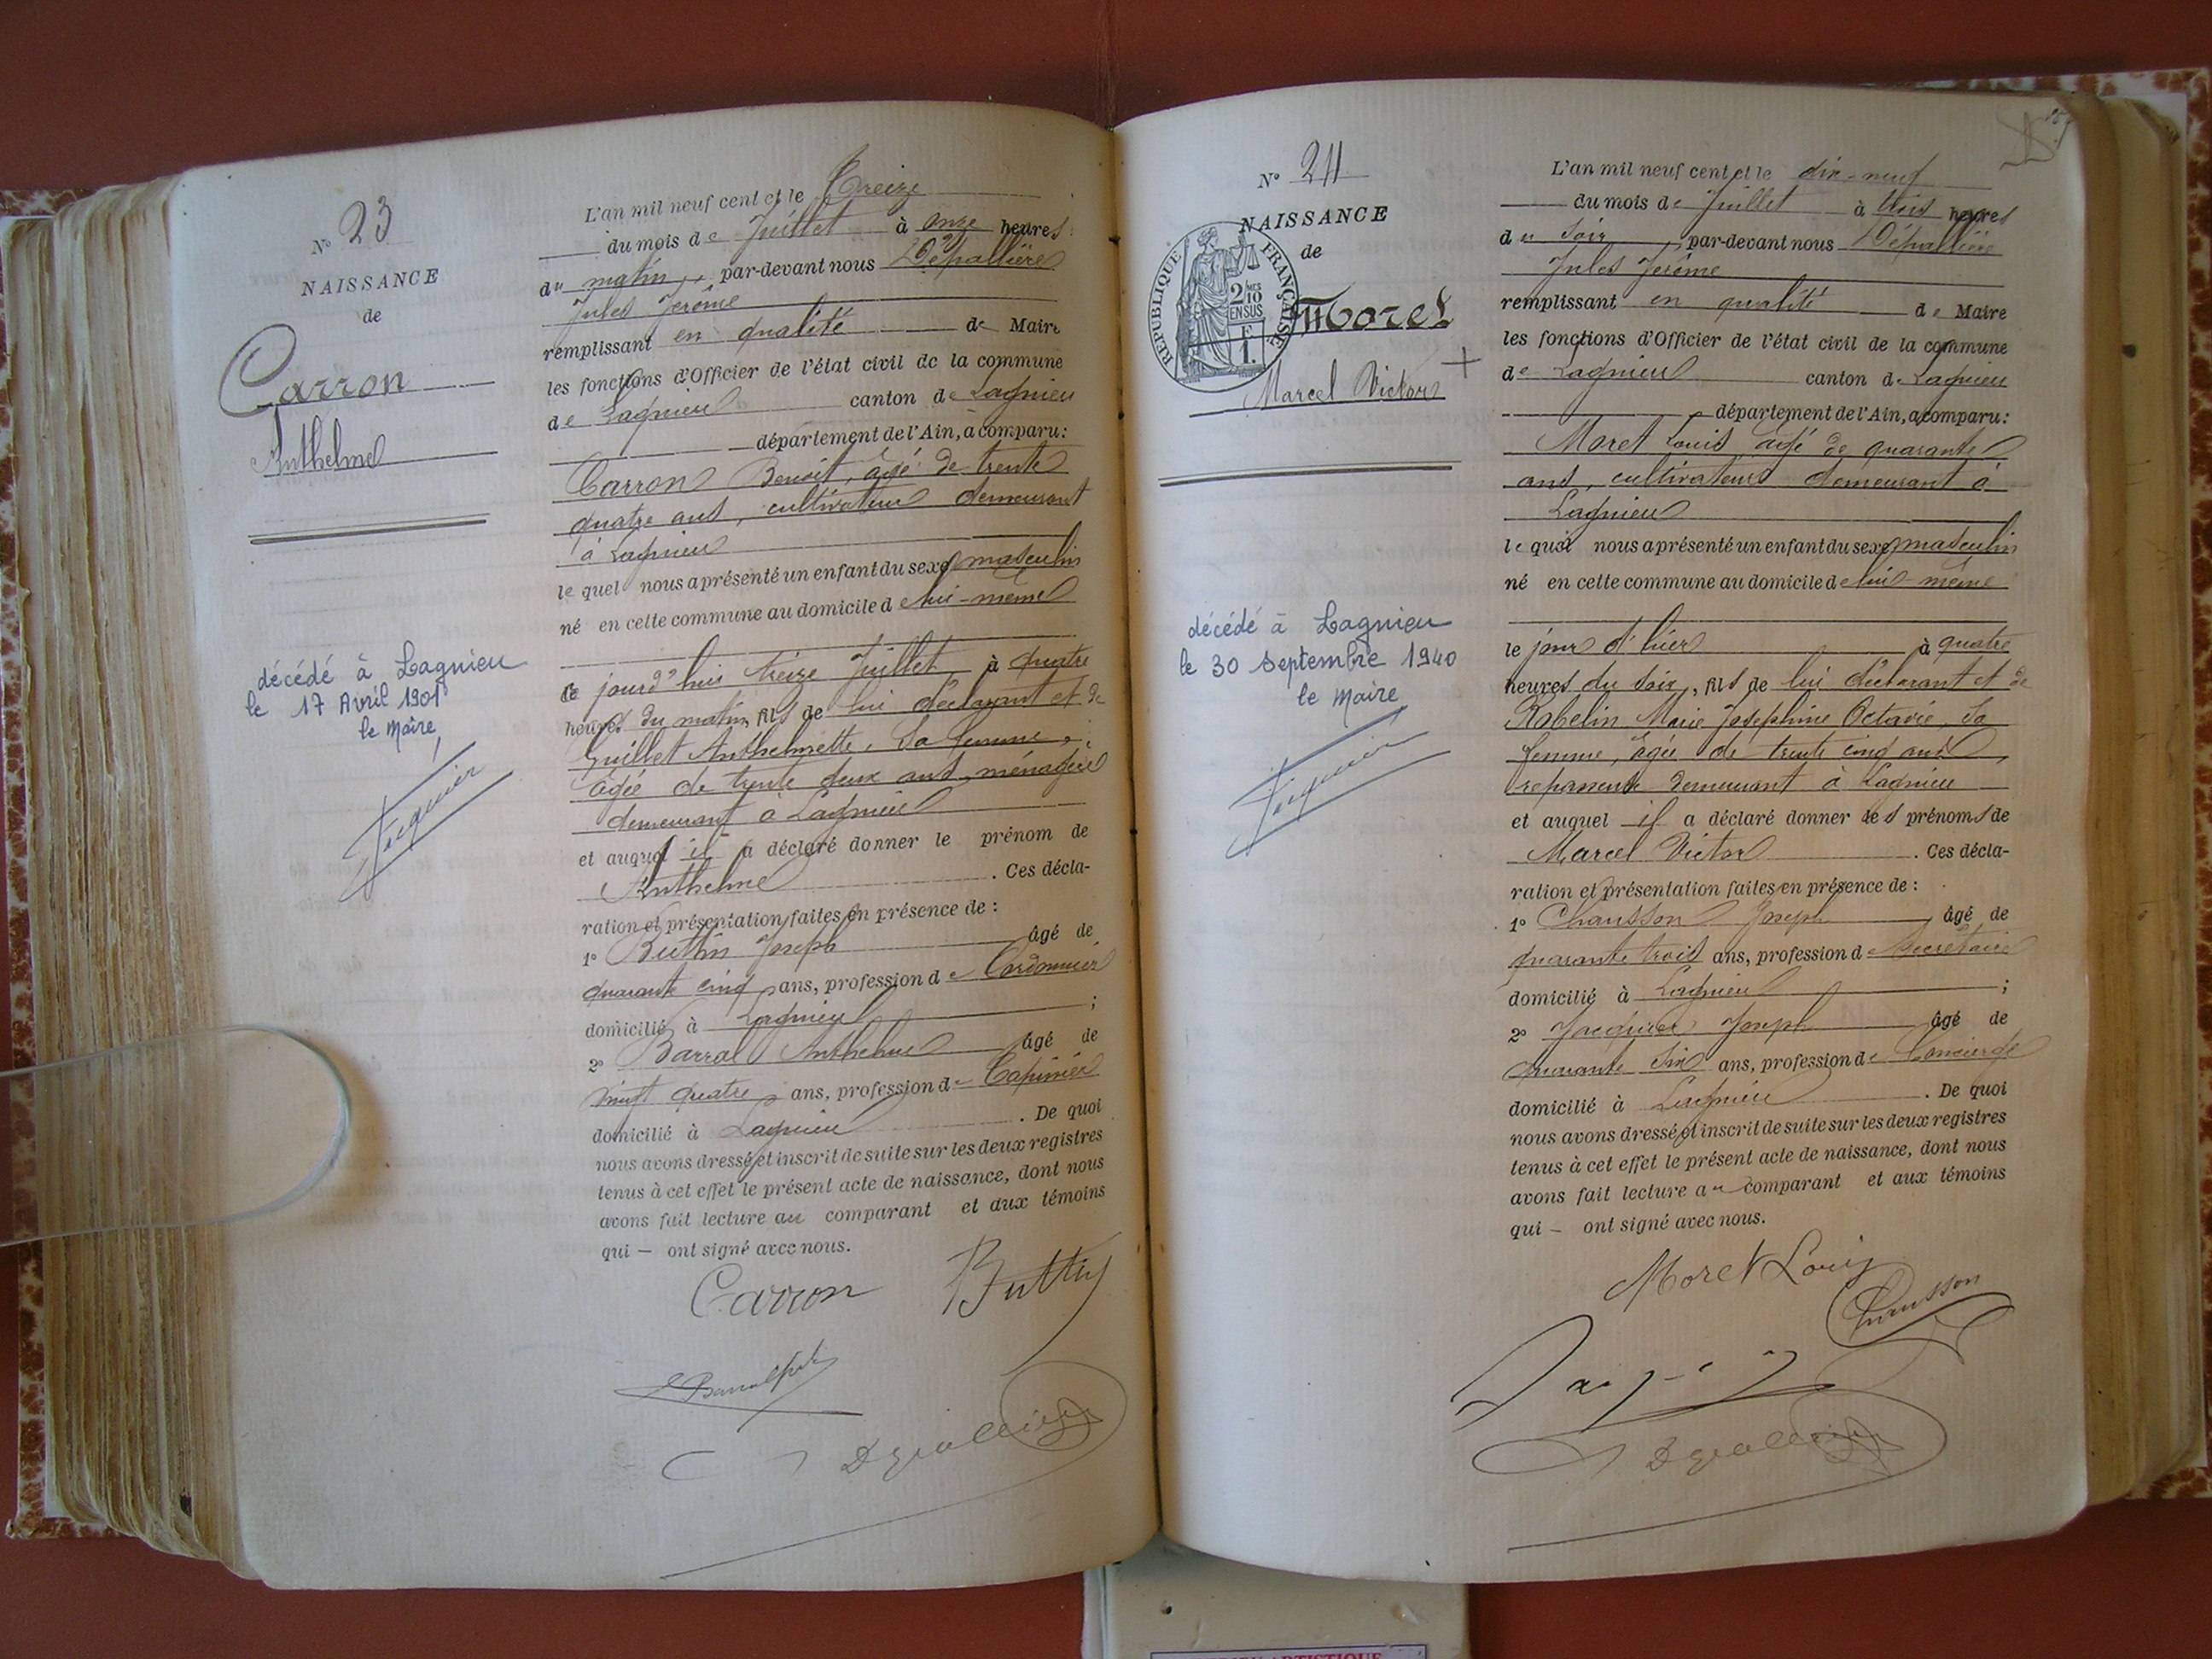 N° 23
NAISSANCE
de
Carron
Anthelme
décédé à Lagnieu
le 17 Avril 1901
le Maire
L'an mil neuf cent et le Treize
du mois de Juillet à onze heures
du matin, par-devant nous Dépallière
Jules Jérôme
remplissant en qualité de Maire
les fonctions d'Officier de l'état civil de la commune
de Lagnieu canton de Lagnieu
département de l'Ain, a comparu:
Carron Benoit, âgé de trente
quatre ans, cultivateur demeurant
à Lagnieu
le quel nous a présenté un enfant du sexe masculin
né en cette commune au domicile de lui-même
ce jourd'hui treize Juillet à quatre
heures du matin, fils de lui déclarant et de
Guillet Anthelmette, sa femme,
âgée de trente deux ans, ménagère
demeurant à Lagnieu
et auquel il a déclaré donner le prénom de
Anthelme . Ces décla-
ration et présentation faites en présence de :
1° Buttin Joseph âgé de
quarante cinq ans, profession de Cordonnier
domicilié à Lagnieu ;
2° Barral Anthelme âgé de
vingt quatre ans, profession de
domicilié à Lagnieu . De quoi
nous avons dressé et inscrit de suite sur les deux registres
tenus à cet effet le présent acte de naissance, dont nous
avons fait lecture au comparant et aux témoins
qui — ont signé avec nous.
Carron Buttin
N° 24
NAISSANCE
de
RÉPUBLIQUE FRANÇAISE
2/10 EN SUS
1 F.
Moret
Marcel Victor
décédé à Lagnieu
le 30 Septembre 1940
le Maire
L'an mil neuf cent et le dix-neuf
du mois de Juillet à trois heures
du soir, par-devant nous Dépallière
Jules Jérôme
remplissant en qualité de Maire
les fonctions d'Officier de l'état civil de la commune
de Lagnieu canton de Lagnieu
département de l'Ain, a comparu:
Moret Louis âgé de quarante
ans, cultivateur demeurant à
Lagnieu
le quel nous a présenté un enfant du sexe masculin
né en cette commune au domicile de lui-même
le jour d'hier à quatre
heures du soir, fils de lui déclarant et de
Rabelin Marie Joséphine Octavie, sa
femme, âgée de trente cinq ans,
repasseuse demeurant à Lagnieu
et auquel il a déclaré donner les prénoms de
Marcel Victor . Ces décla-
ration et présentation faites en présence de :
1° Chausson Joseph âgé de
quarante trois ans, profession de Secrétaire
domicilié à Lagnieu ;
2° Jacquier Joseph âgé de
quarante six ans, profession de Concierge
domicilié à Lagnieu . De quoi
nous avons dressé et inscrit de suite sur les deux registres
tenus à cet effet le présent acte de naissance, dont nous
avons fait lecture au comparant et aux témoins
qui — ont signé avec nous.
Moret Louis
Chausson